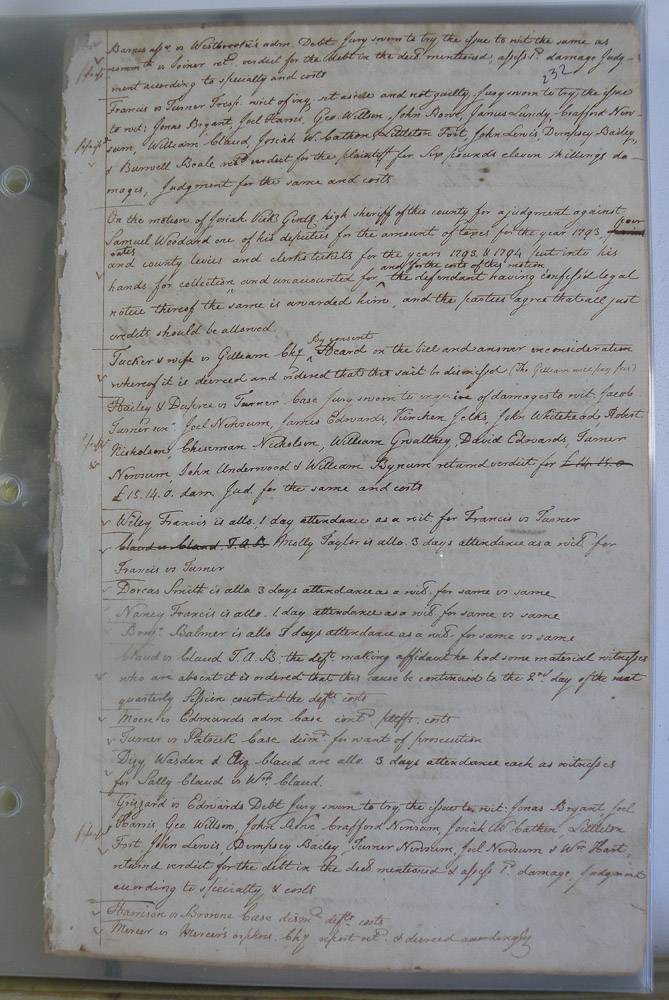 Barnes assee vs Westbrook's adm. Debt Jury sworn to try the issue to wit the same as
 vs Joiner retd. verdict for the debt in the decl mentioned, assess 1d. damage Judg-
ment according to specialty and costs
232
Francis vs Turner Tresp. writ of inq. set aside and not guilty, Jury sworn to try the issue
to wit: Jonas Bryant, Joel Harris, Geo. Willson, John James Lundy, Crafford New-
sum, William Claud, Josiah W. Cathon, Littleton Fort, John Lewis, Dempsey Bailey,
& Burwell Beale retd verdict for the plaintiff for Six pounds eleven shillings da-
mages, Judgment for the same and costs
On the motion of Josiah Vick Gent. high sheriff of this county for a judgment against
Samuel Woodard one of his deputies for the amount of taxes for the year 1793, poor
rates
and county levies and clerks tickets for the years 1793 & 1794 put into his
and for the costs of this motion
hands for collection and unaccounted for the defendant having confess'd legal
notice thereof the same is awarded him, and the parties agree that all just
credits should be allowed
By consent
Tucker & wife vs Gilliam Chy Heard on the bill and answer on consideration
whereof it is decreed and ordered that this suit be dismissed (Tho. Gilliam will pay fees)
Hailey & Dupree vs Turner Case Jury sworn to inquire of damages to wit: Jacob
Turner senr. Joel Newsum, James Edwards, Kinchen Jelks, John Whitehead, Robert
Nicholson, Cheseman Nicholson, William Gwalthey, David Edwards, Turner
Newsum John Underwood & William Bynum returnd verdict for £14.15.0
£15.14.0. dam. Jud. for the same and costs
Wiley Francis is allo. 1 day attendance as a wit. for Francis vs Turner
Claud vs Claud T.A.B. Molly Taylor is allo. 3 days attendance as a wit. for
Francis vs Turner
Dorcas Smith is allo 3 days attendance as a wit. for same vs same
Nancy Francis is allo. 1 day attendance as a wit for same vs same
Benjn. Balmer is allo 3 days attendance as a wit. for same vs same
Claud vs Claud T.A.B. the deft. making affidavit he had some material witnesses
who are absent it is ordered that this cause be continued to the 2nd. day of the next
quarterly Session court at the defts. costs
Moore vs Edmunds adm Case contd. pltffs. costs
Turner vs Patrick Case dismd. for want of prosecution
Dizy Wasden & Claud are allo. 3 days attendance each as witnesses
for Sally Claud vs Wm. Claud.
Grizzard vs Edwards Debt Jury sworn to try the issue to wit: Jonas Bryant, Joel
Harris, Geo. Willson, John Crafford Newsum, Josiah W Cathon, Littleton
Fort, John Lewis, Dempsey Bailey, Turner Newsum, Joel Newsum & Wm. Hart,
returnd verdict for the debt in the decl mentioned & assess 1d. damage, Judgment
according to specialty & costs
Harrison vs Browne Case dismd. defts. costs
Mercer vs Mercer's orphans. Chy report retd. & decreed accordingly